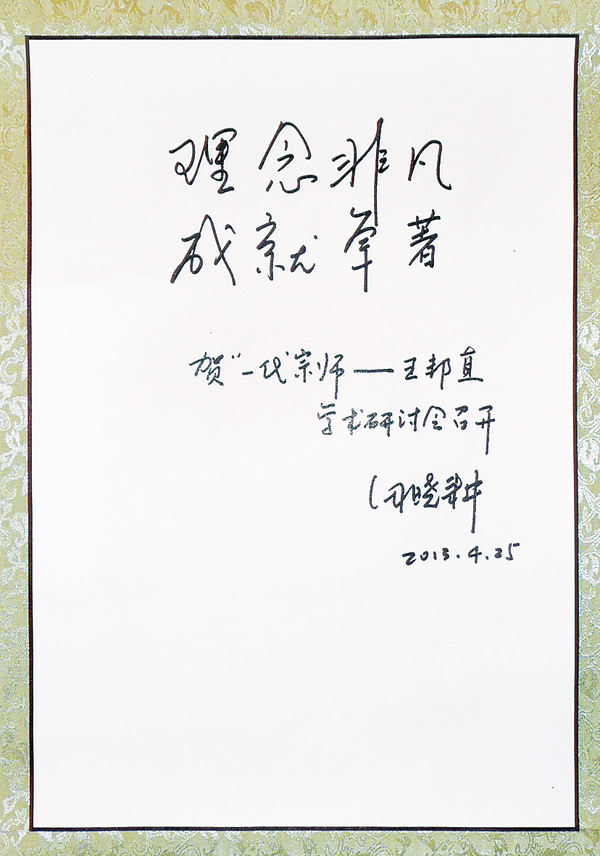 理念非凡
成就卓著
贺“一代宗师——王邦直
学术研讨会召开
晓耕
2013.4.25